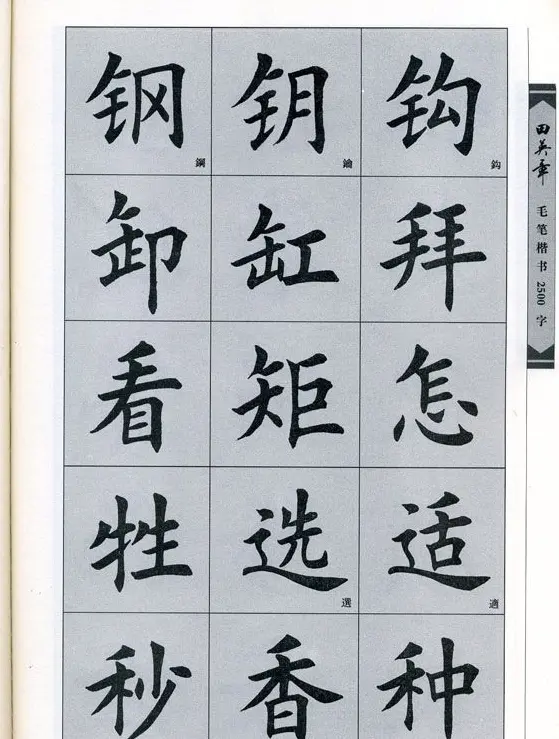 钢 鋼 钥 鑰 钩 鈎
卸 缸 拜
看 矩 怎
牲 选 選 适 適
秒 香 种
田英章 毛笔楷书2500字